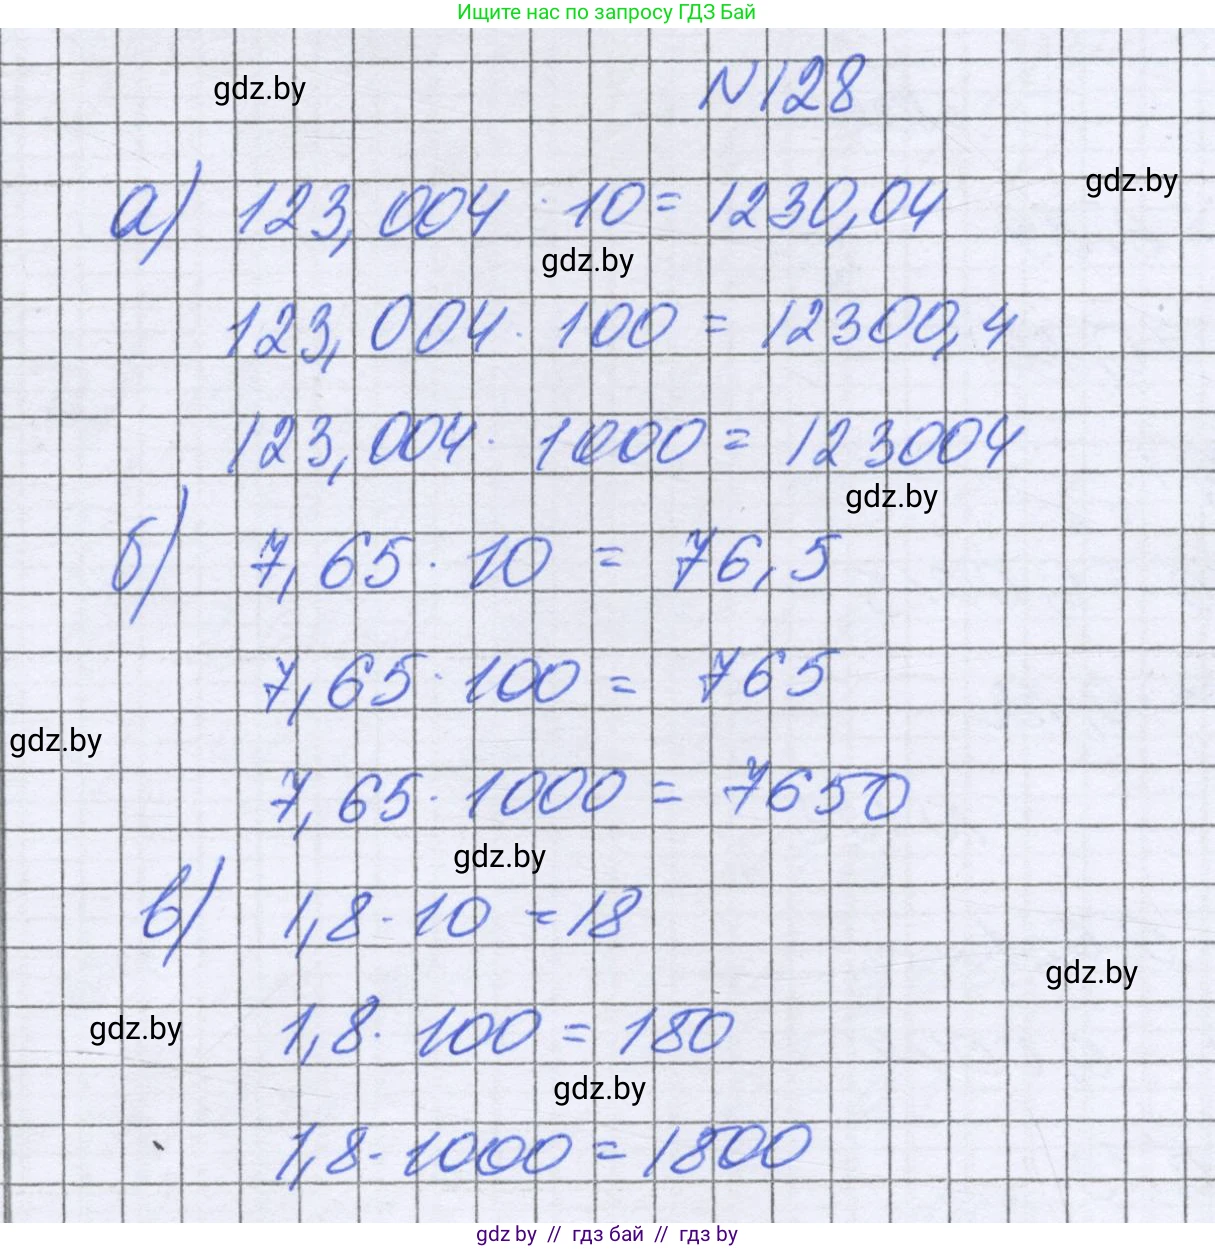 Ищите нас по запросу ГДЗ Бай
N128
gdz.by
gdz.by
а) 123,004 · 10 = 1230,04
gdz.by
123,004 · 100 = 12300,4
123,004 · 1000 = 123004
gdz.by
б) 7,65 · 10 = 76,5
7,65 · 100 = 765
gdz.by
7,65 · 1000 = 7650
gdz.by
в) 1,8 · 10 = 18
gdz.by
gdz.by
1,8 · 100 = 180
gdz.by
1,8 · 1000 = 1800
gdz by // гдз бай // гдз by